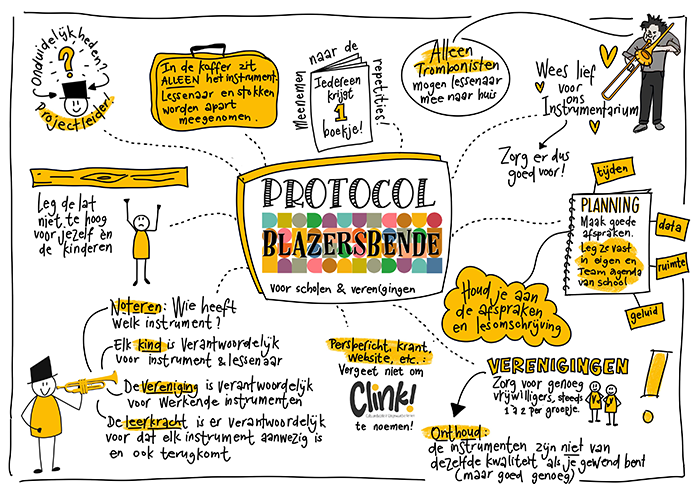 Onduidelijkheden?
?
projectleider!
In de koffer zit
ALLEEN het instrument.
Lessenaar en stokken
worden apart
meegenomen.
Meenemen naar de repetities!
Iedereen
krijgt
1
boekje!
Alleen
Trombonisten
mogen lessenaar
mee naar huis
Wees lief
voor
ons
Instrumentarium
Zorg er dus
goed voor!
Leg de lat
niet te hoog
voor jezelf èn
de kinderen
PROTOCOL
BLAZERSBENDE
voor scholen & verenigingen
tijden
data
ruimte
geluid
PLANNING
Maak goede
afspraken.
Leg ze vast
in eigen en
Team agenda
van school
Houd je aan
de afspraken
en lesomschrijving
Noteren: Wie heeft
welk instrument?
Elk kind is verantwoordelijk
voor instrument & lessenaar
De vereniging is verantwoordelijk
voor werkende instrumenten
De leerkracht is er verantwoordelijk
voor dat elk instrument aanwezig is
en ook terugkomt.
Persbericht, krant,
website, etc.:
Vergeet niet om
Clink!
te noemen!
VERENIGINGEN
Zorg voor genoeg
vrijwilligers, steeds
1 à 2 per groepje.
!
Onthoud:
de instrumenten zijn niet van
dezelfde kwaliteit als je gewend bent
(maar goed genoeg)